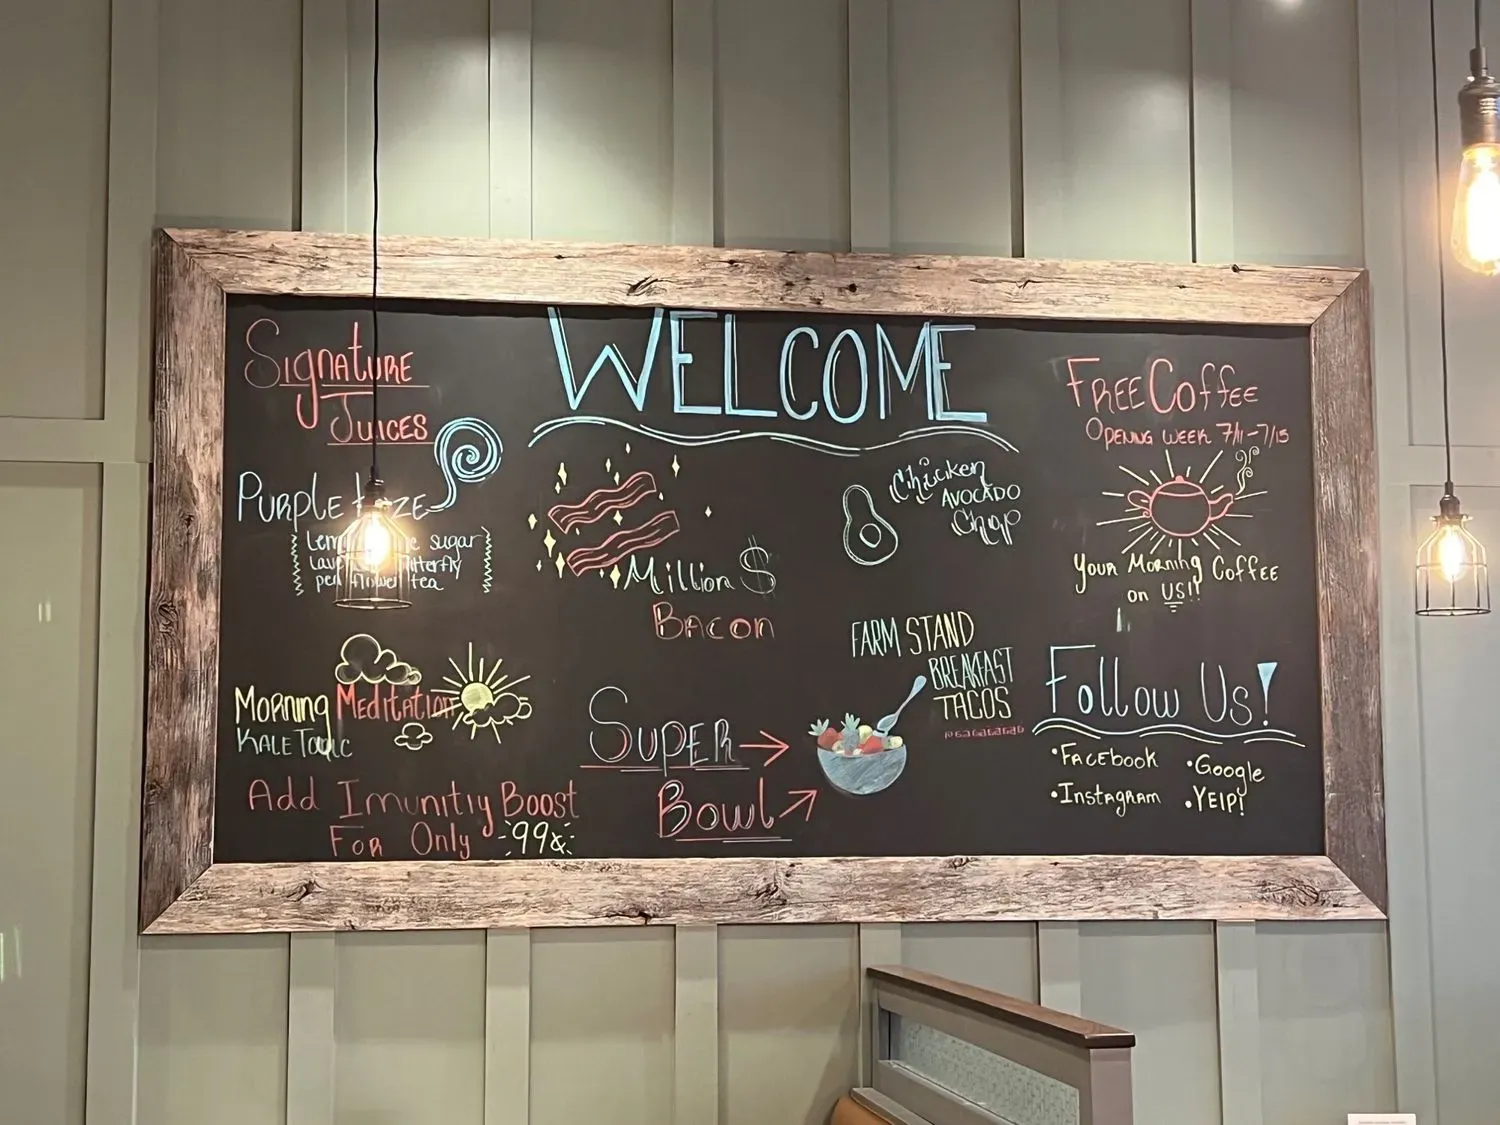 WELCOME
SIGNATURE
JUICES
PURPLE
sugar
pea flower tea
MORNING MEDITATION
KALE TONIC
ADD IMUNITIY BOOST
FOR ONLY 99¢
Million $
BACON
SUPER
BOWL
Chicken
AVOCADO
Chop
FARM STAND
BREAKFAST
TACOS
FREE COFFEE
OPENING WEEK 7/11-7/15
YOUR MORNING COFFEE
ON US!!
FOLLOW US!
•FACEBOOK
•Google
•INSTAGRAM
•YELP!